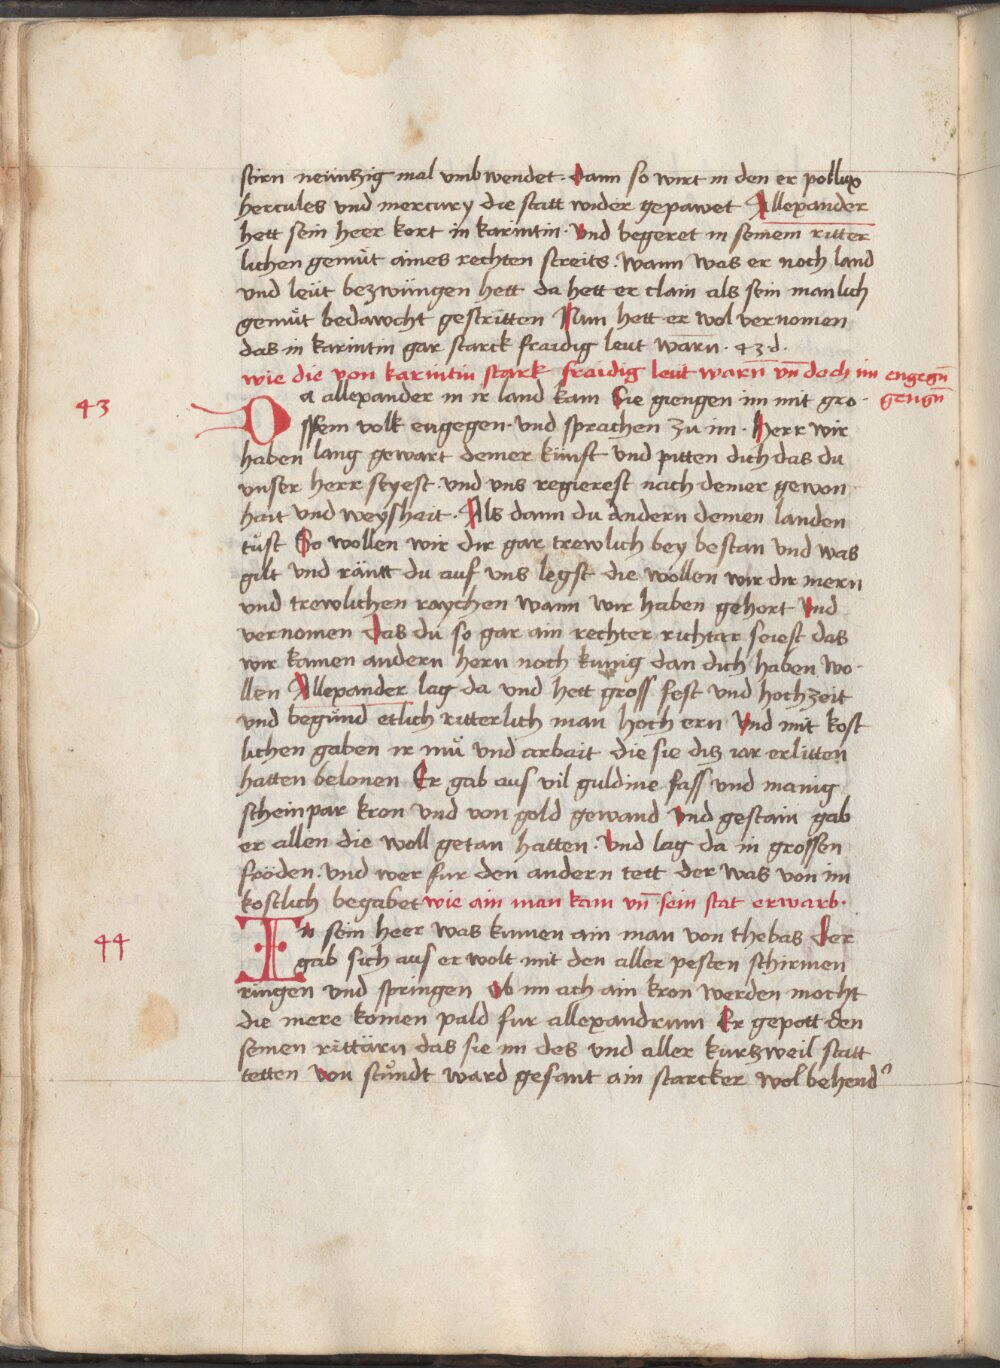 stirn neüntzig mal vmb wendet. Dann so wirt in den er pollux
hercules vnd mercury die statt wider gepawet Allexander
hett sein heer kort in karintin. Vnd begeret in seinem ritter
lichen gemüt aines rechten streits. Wann was er noch land
vnd leüt bezwüngen hett da hett er clain als sein manlich
gemüt bedawcht gestritten Nun hett er wol vernomen
das in karintin gar starck fraidig leut warn. 43 d.
wie die von karintin stark fraidig leut warn vn̄ doch im engegn̄
giengn̄
43
Da allexander in ir land kam Sie giengen im mit gro-
ssem volk engegen. vnd sprachen zu im. Herr wir
haben lang gewart deiner künft vnd pitten dich das du
vnser herr seyest. vnd vns regierest nach deiner gewon
hait vnd weyshait. Als dann du andern deinen landen
tüst So wollen wir dir gar trewlich bey bestan vnd was
gilt vnd räntt du auf vns legst die wöllen wir dir mern
vnd trewlichen raychen wann wir haben gehort Vnd
vernomen Das du so gar ain rechter richtar seiest das
wir kainen andern hern noch kunig dan dich haben wo-
llen Allexander lag da vnd hett gross fest vnd hochzeit
vnd begünd ettlich ritterlich man hoch ern Vnd mit kost
lichen gaben ir mü vnd arbait die sie dis iar erlitten
hatten belonen Er gab aus vil guldine fass vnd manig
scheinpar kron vnd von gold gewand Vnd gestain gab
er allen die woll getan hatten. Vnd lag da in grossen
fröden. vnd wer fur den andern tett der was von im
kostlich begabet wie ain man kam vn̄ sein stat erwarb.
44
In sein heer was kumen ain man von thebas Der
gab sich aus er wolt mit den aller pesten schirmen
ringen vnd springen Ob im ach ain kron werden mocht
die mere komen pald fur allexandrum Er gepott den
seinen rittärn das sie im des vnd aller kurzweil statt
tetten Von stündt ward gesant ain starcker wol behend